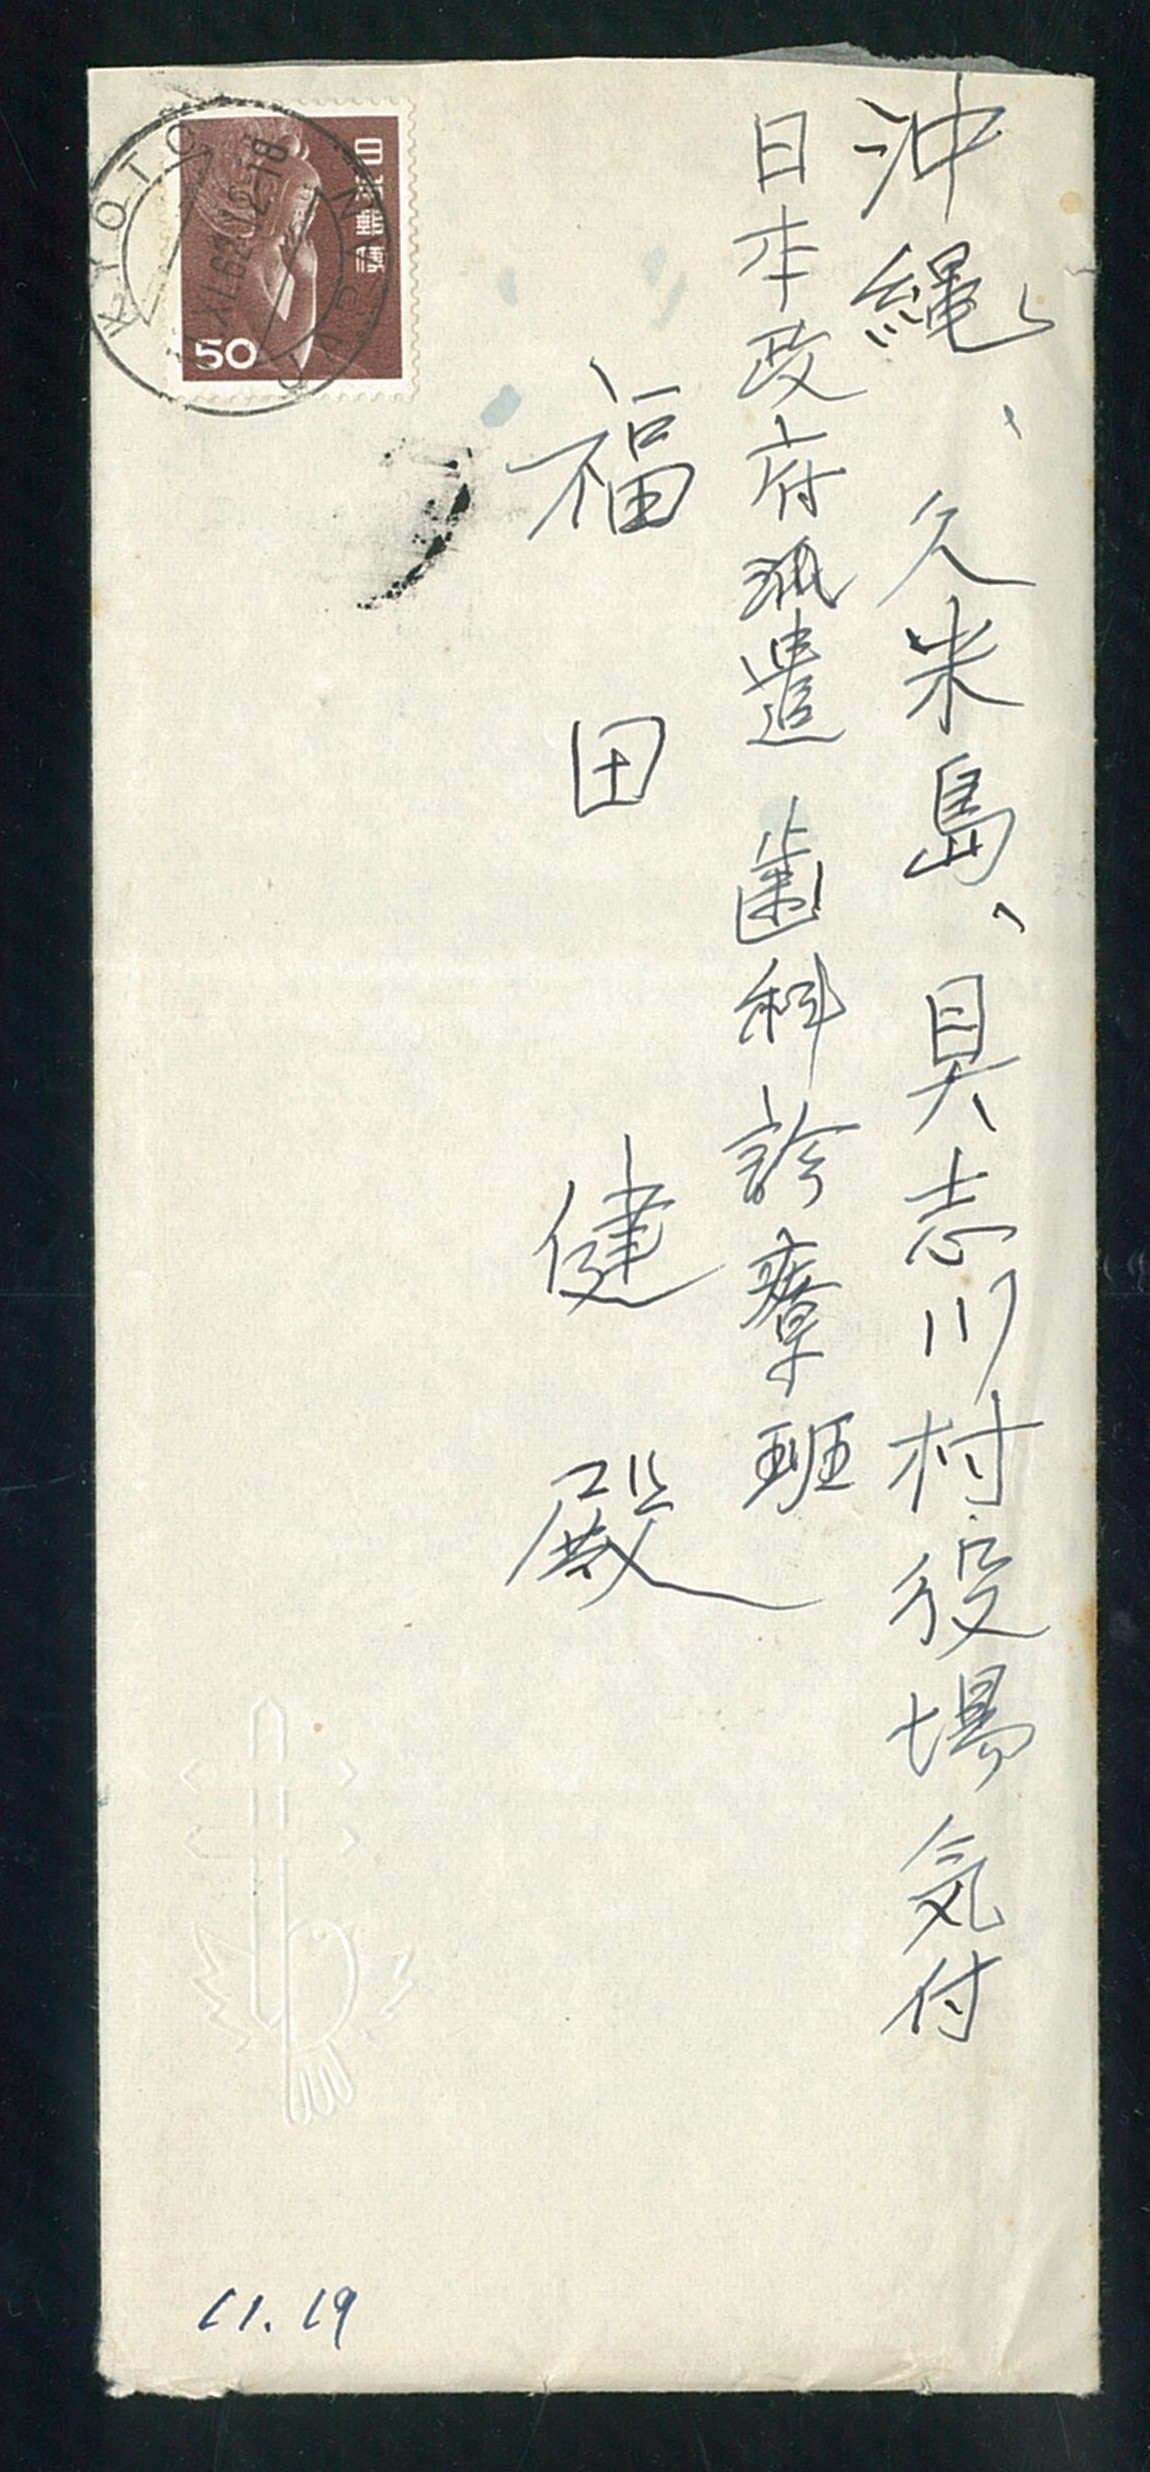 沖縄、久米島、具志川村役場気付
日本政府派遣歯科診療班
福田健殿
日本郵便
50
KYOTO
11.19